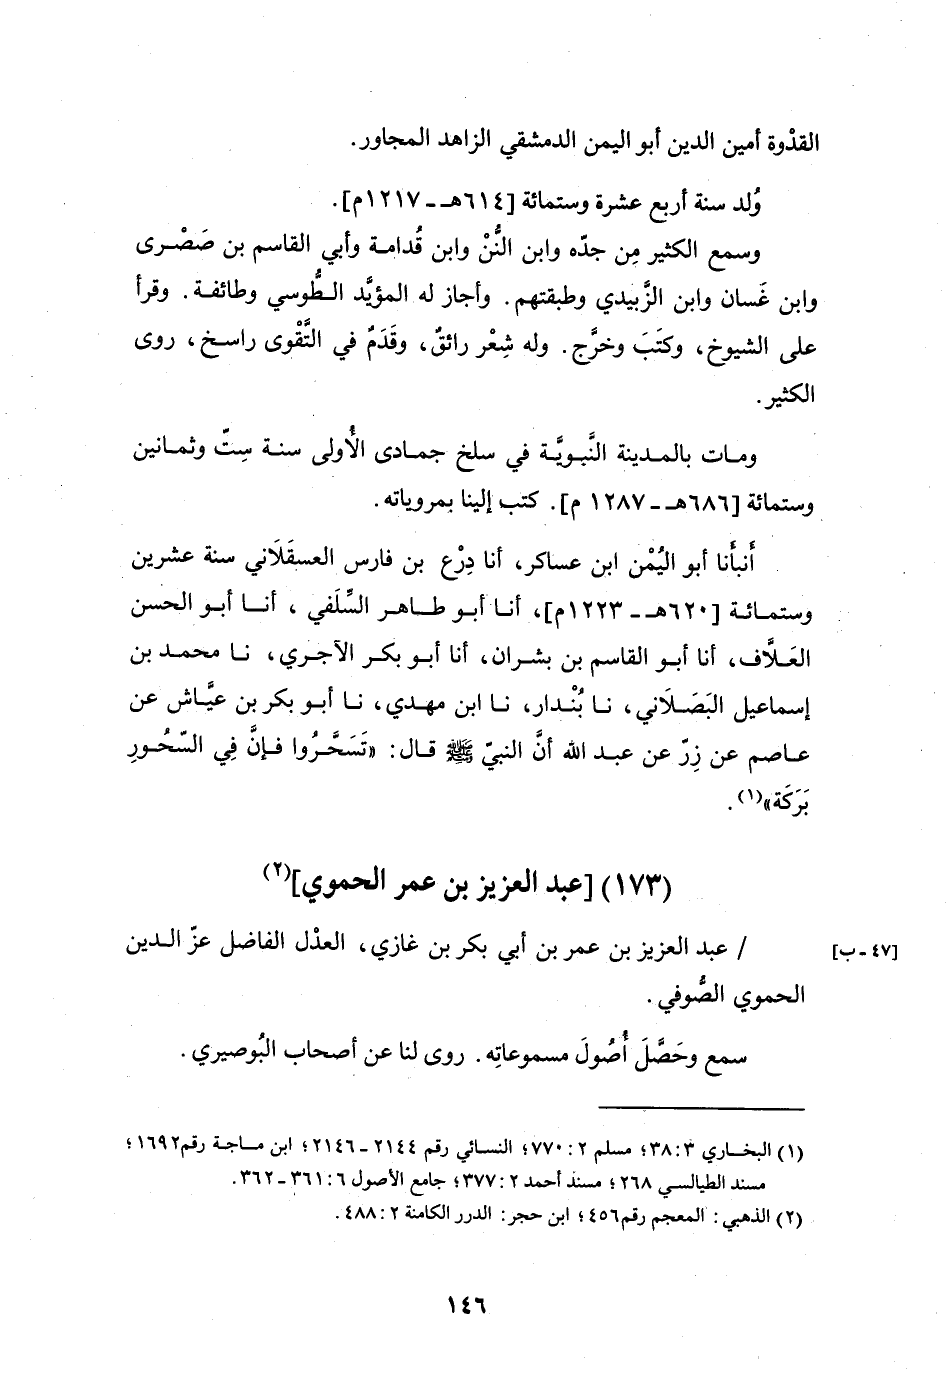 القدْوة أمين الدين أبو اليمن الدمشقي الزاهد المجاور.
وُلد سنة أربع عشرة وستمائة [٦١٤هـ - ١٢١٧م].
وسمع الكثير مِن جدّه وابن النُّنْ وابن قُدامة وأبي القاسم بن صَصْرى
وابن غَسان وابن الزَّبيدي وطبقتهم. وأجاز له المؤيَّد الطُّوسي وطائفة. وقرأ
على الشيوخ، وكتَبَ وخرَّج. وله شِعْر رائقٌ، وقَدَمٌ في التَّقْوى راسخ، روى
الكثير.
ومات بالمدينة النَّبويَّة في سلخ جمادى الأُولى سنة سِتّ وثمانين
وستمائة [٦٨٦هـ - ١٢٨٧ م]. كتب إلينا بمروياته.
أَنبأَنا أبو اليُمْن ابن عساكر، أنا دِرْع بن فارس العسقَلَاني سنة عشرين
وستمائة [٦٢٠هـ - ١٢٢٣م]، أنا أبو طاهر السِّلَفي، أنا أبو الحسن
العَلَّاف، أنا أبو القاسم بن بشران، أنا أبو بكر الآجري، نا محمد بن
إسماعيل البَصَلَاني، نا بُنْدار، نا ابن مهدي، نا أبو بكر بن عيَّاش عن
عاصم عن زِرّ عن عبد الله أنَّ النبيّ ﷺ قال: «تَسَحَّرُوا فإنَّ فِي السّحُورِ
بَرَكَة»(١).
(١٧٣) [عبد العزيز بن عمر الحموي](٢)
[٤٧ - ب] / عبد العزيز بن عمر بن أبي بكر بن غازي، العدْل الفاضل عزّ الدين
الحموي الصُّوفي.
سمع وحَصَّلَ أُصُولَ مسموعاتِه. روى لنا عن أصحاب البُوصيري.
(١) البخاري ٣: ٣٨؛ مسلم ٢: ٧٧٠؛ النسائي رقم ٢١٤٤ - ٢١٤٦؛ ابن ماجة رقم ١٦٩٢؛
مسند الطيالسي ٢٦٨؛ مسند أحمد ٢: ٣٧٧؛ جامع الأصول ٦: ٣٦١ - ٣٦٢.
(٢) الذهبي: المعجم رقم ٤٥٦؛ ابن حجر: الدرر الكامنة ٢: ٤٨٨.
١٤٦